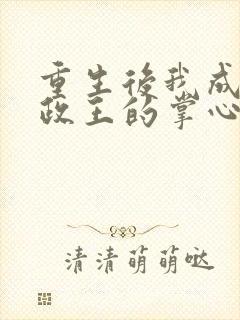 重生後我成
政王的掌心
清清萌萌哒